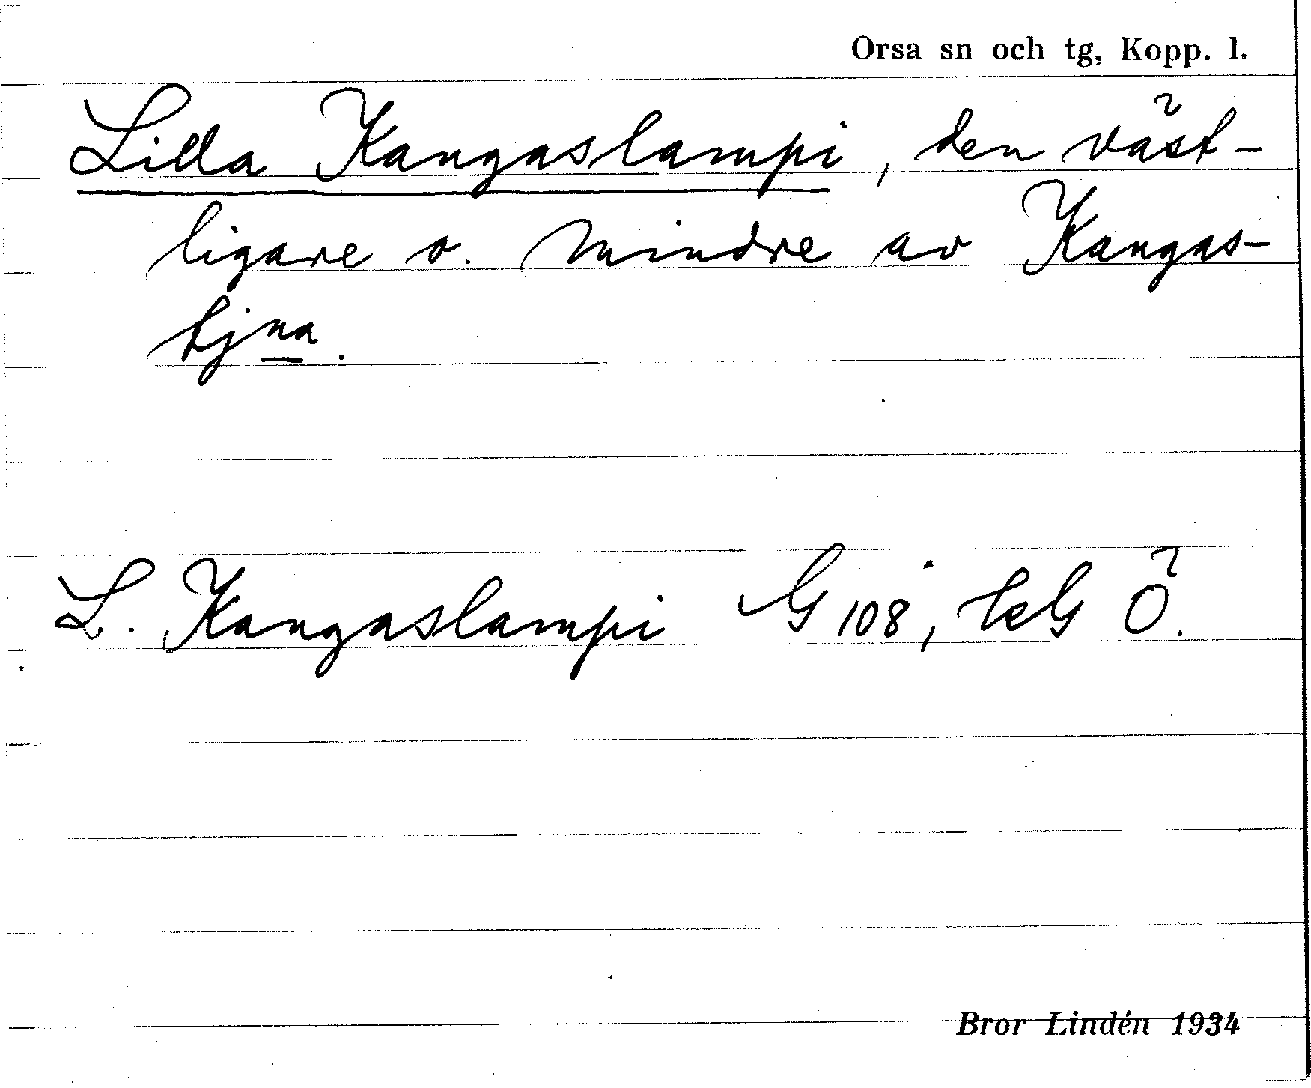 Orsa sn och tg, Kopp. l.
Lilla Kangaslampi, den väst-
ligare o. mindre av Kangas-
tjna.
L. Kangaslampi G 108, ekG Ö.
Bror Lindén 1934